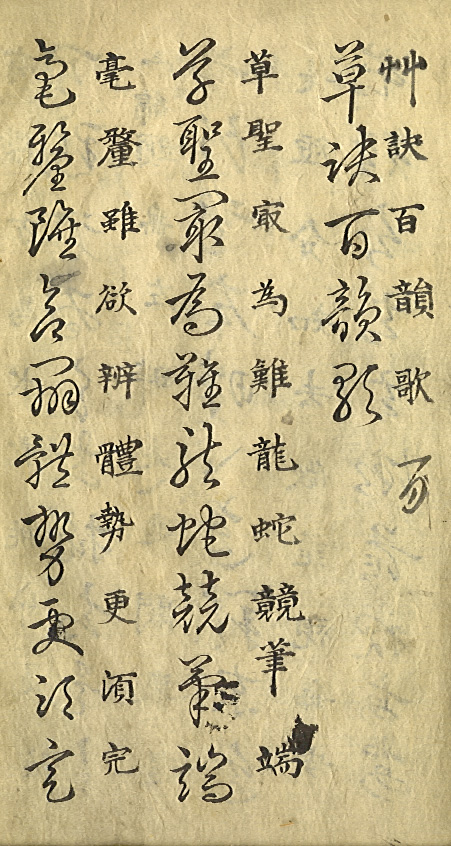 艸訣百韻歌
草訣百韻歌
草聖㝡為難龍蛇競筆端
草聖㝡為難龍蛇競筆端
毫釐雖欲辨體勢更湏完
毫釐雖欲辨體勢更須完